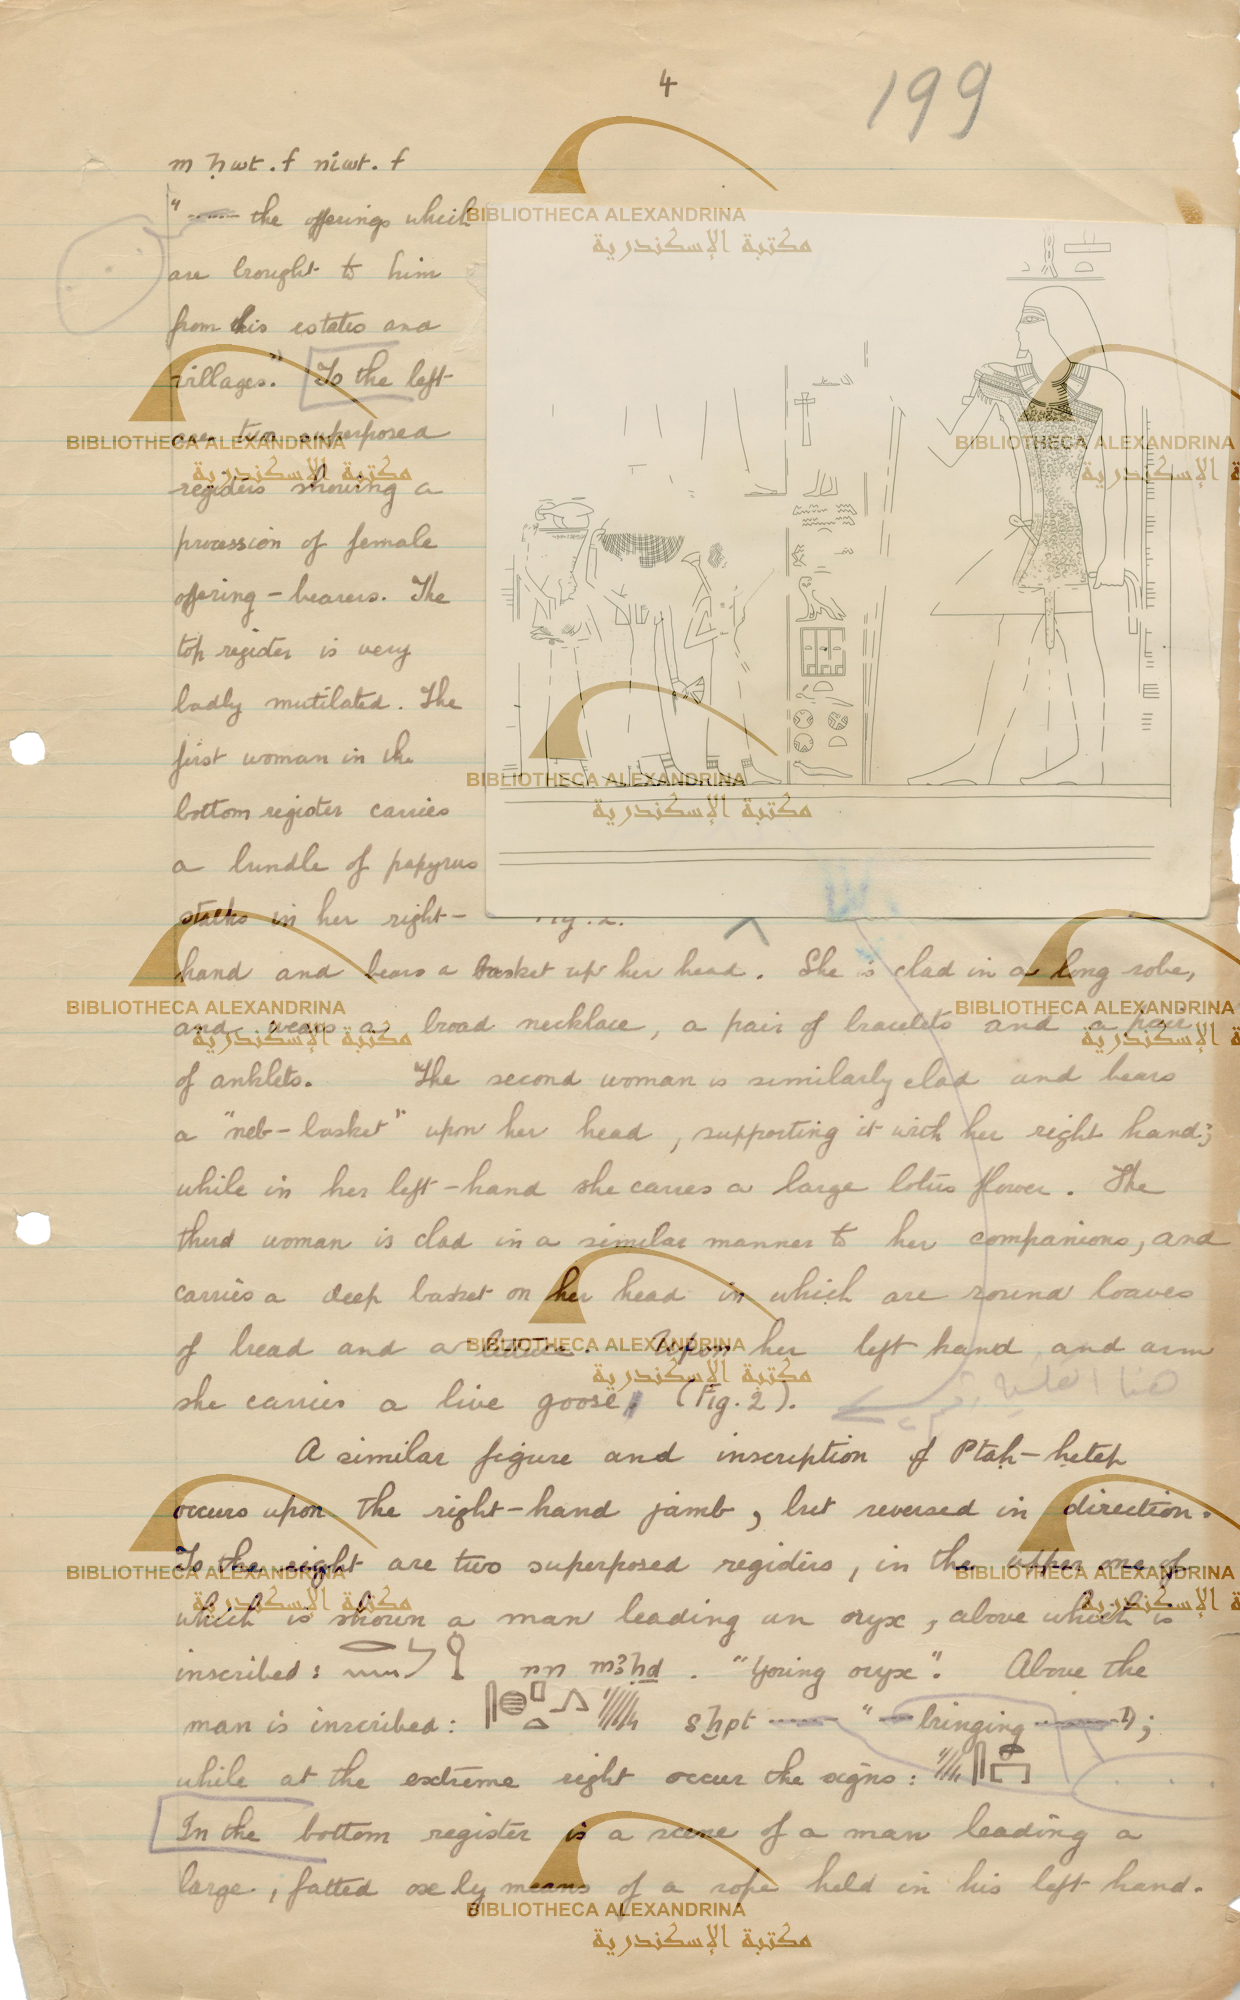 4
199
m ḥwt.f niwt.f
" ------ the offerings which
are brought to him
from his estates and
villages." To the left
are two superposed
registers showing a
procession of female
offering-bearers. The
top register is very
badly mutilated. The
first woman in the
bottom register carries
a bundle of papyrus
stalks in her right-
Fig. 2.
hand and bears a basket up her head. She is clad in a long robe,
and wears a broad necklace, a pair of bracelets and a pair
of anklets. The second woman is similarly clad and bears
a "neb-basket" upon her head, supporting it with her right hand;
while in her left-hand she carres a large lotus flower. The
third woman is clad in a similar manner to her companions, and
carries a deep basket on her head in which are round loaves
of bread and a lettuce. Upon her left hand and arm
she carries a live goose, (Fig. 2).
A similar figure and inscription of Ptaḥ-ḥetep
occurs upon the right-hand jamb, but reversed in direction.
To the right are two superposed registers, in the upper one of
which is shown a man leading an oryx, above which is
inscribed: nn mꜣḥḏ. "Young oryx". Above the
man is inscribed: sḫpt ------ "— bringing ------";
while at the extreme right occur the signs:
In the bottom register is a scene of a man leading a
large, fatted ox by means of a rope held in his left hand.
BIBLIOTHECA ALEXANDRINA
مكتبة الإسكندرية